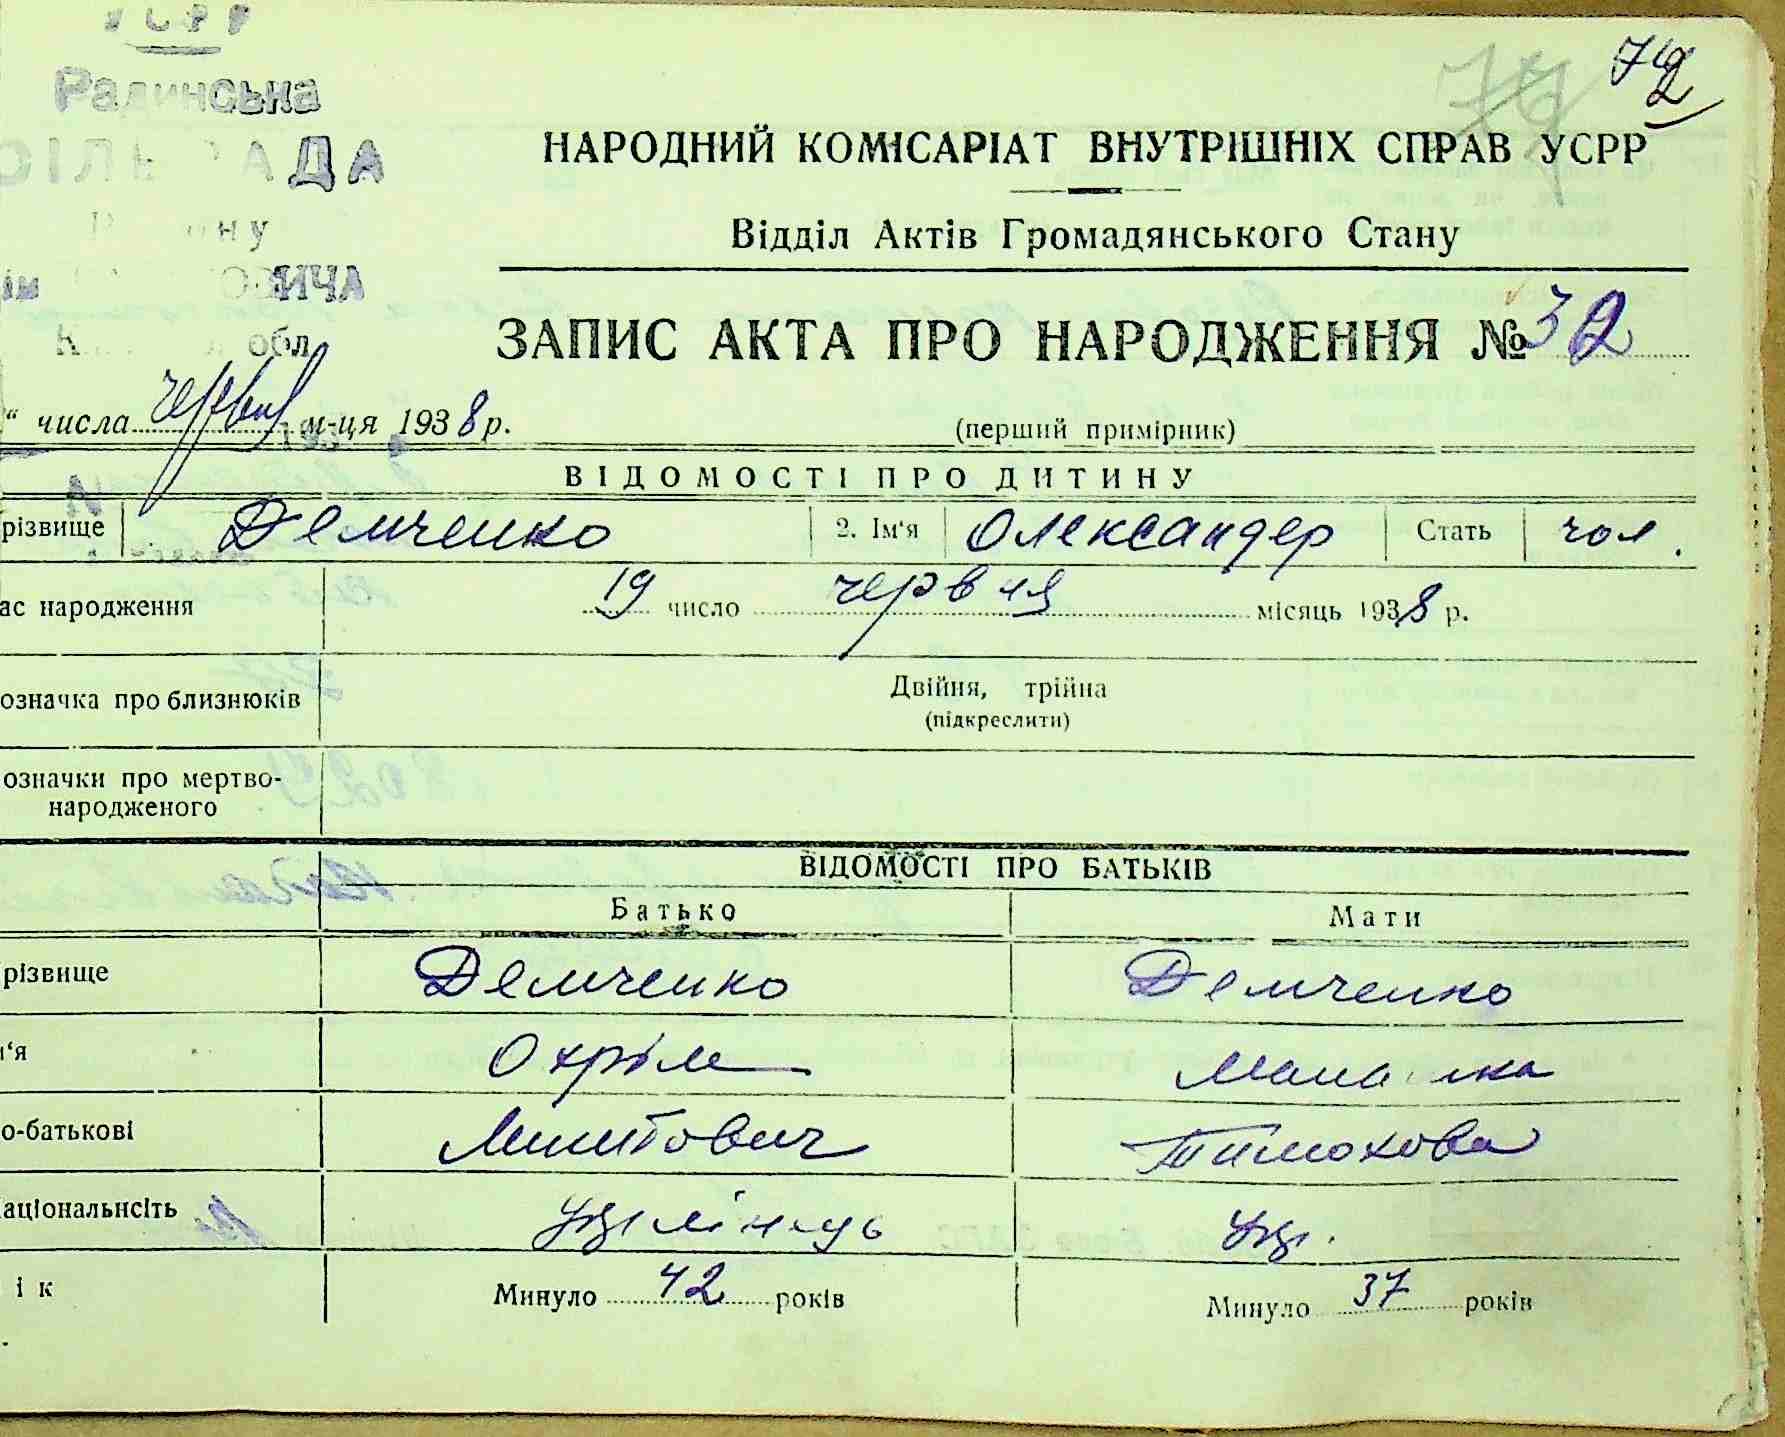 72
НАРОДНИЙ КОМІСАРІАТ ВНУТРІШНІХ СПРАВ УСРР
Відділ Актів Громадянського Стану
ЗАПИС АКТА ПРО НАРОДЖЕННЯ № 32
“ числа червня м-ця 1938 р.
(перший примірник)
ВІДОМОСТІ ПРО ДИТИНУ
різвище Демченко 2. Ім'я Олександер Стать чол.
ас народження 19 число червня місяць 1938 р.
означка про близнюків Двійня, трійна
(підкреслити)
означки про мертво-
народженого
ВІДОМОСТІ ПРО БАТЬКІВ
Батько Мати
різвище Демченко Демченко
'я Охрім
о-батькові Тимохова
аціональнсіть Українець Укр.
ік Минуло 42 років Минуло 37 років